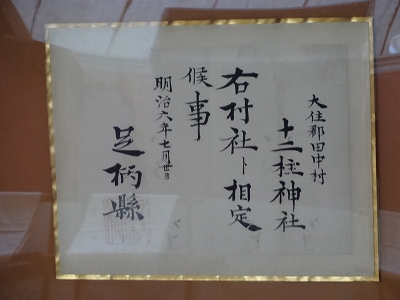 大住郡田中村
十二柱神社
右村社ト相定
候事
明治六年七月卅日
足柄縣